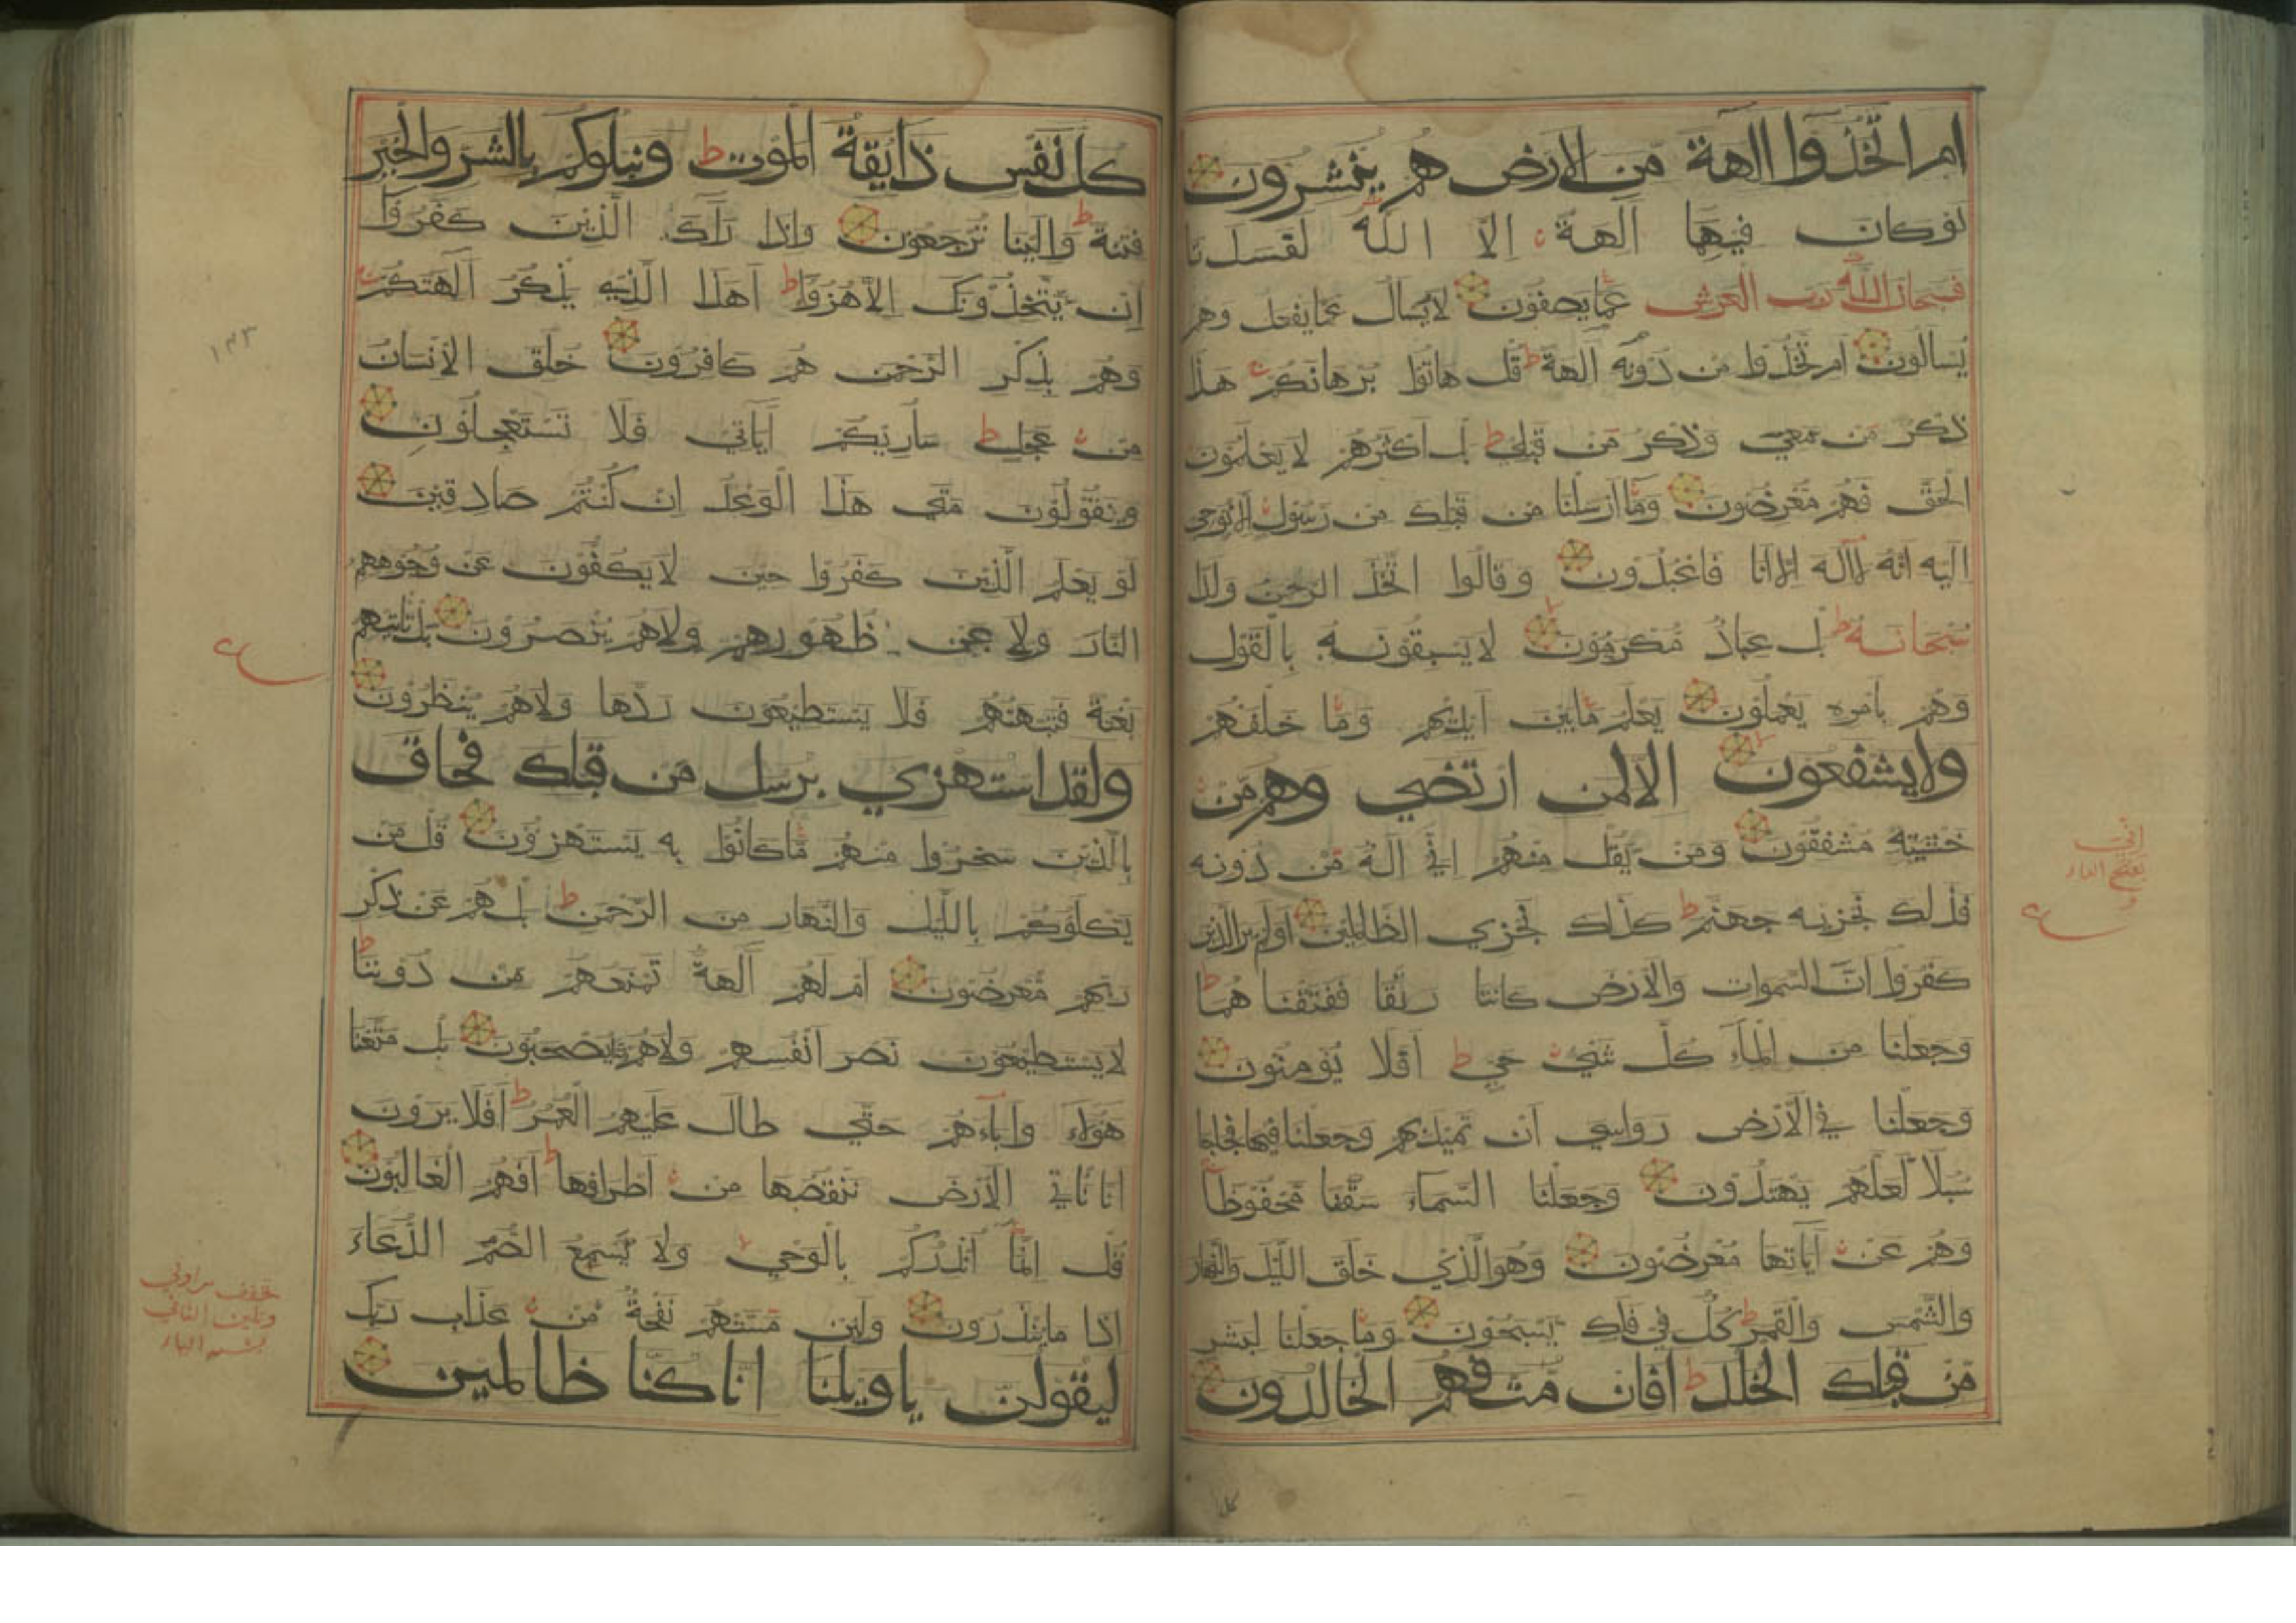 ام اتخذوا الهة من الارض هم ينشرون
لو كان فيهما الهة الا الله لفسدتا
فسبحان الله رب العرش عما يصفون لا يسال عما يفعل وهم
يسالون ام اتخذوا من دونه الهة قل هاتوا برهانكم هذا
ذكر من معي وذكر من قبلي بل اكثرهم لا يعلمون
الحق فهم معرضون وما ارسلنا من قبلك من رسول الا نوحي
اليه انه لا اله الا انا فاعبدون وقالوا اتخذ الرحمن ولدا
سبحانه بل عباد مكرمون لا يسبقونه بالقول
وهم بامره يعملون يعلم ما بين ايديهم وما خلفهم
ولا يشفعون الا لمن ارتضي وهم من
خشيته مشفقون ومن يقل منهم اني اله من دونه
فذلك نجزيه جهنم كذلك نجزي الظالمين اولم ير الذين
كفروا ان السموات والارض كانتا رتقا ففتقناهما
وجعلنا من الماء كل شيء حي افلا يؤمنون
وجعلنا في الارض رواسي ان تميد بهم وجعلنا فيها فجاجا
سبلا لعلهم يهتدون وجعلنا السماء سقفا محفوظا
وهم عن اياتها معرضون وهو الذي خلق الليل والنهار
والشمس والقمر كل في فلك يسبحون وما جعلنا لبشر
من قبلك الخلد افان مت فهم الخالدون
كل نفس ذايقة الموت ونبلوكم بالشر والخير
فتنة والينا ترجعون واذا راك الذين كفروا
ان يتخذونك الا هزوا اهذا الذي يذكر الهتكم
وهم بذكر الرحمن هم كافرون خلق الانسان
من عجل ساريكم اياتي فلا تستعجلون
ويقولون متي هذا الوعد ان كنتم صادقين
لو يعلم الذين كفروا حين لا يكفون عن وجوههم
النار ولا عن ظهورهم ولا هم ينصرون بل تاتيهم
بغتة فتبهتهم فلا يستطيعون ردها ولا هم ينظرون
ولقد استهزي برسل من قبلك فحاق
بالذين سخروا منهم ما كانوا به يستهزؤن قل من
يكلؤكم بالليل والنهار من الرحمن بل هم عن ذكر
ربهم معرضون ام لهم الهة تمنعهم من دوننا
لا يستطيعون نصر انفسهم ولا هم منا يصحبون بل متعنا
هؤلاء واباءهم حتي طال عليهم العمر افلا يرون
انا ناتي الارض ننقصها من اطرافها افهم الغالبون
قل انما انذركم بالوحي ولا يسمع الصم الدعاء
اذا ما ينذرون ولين مستهم نفحة من عذاب ربك
ليقولن ياويلنا انا كنا ظالمين